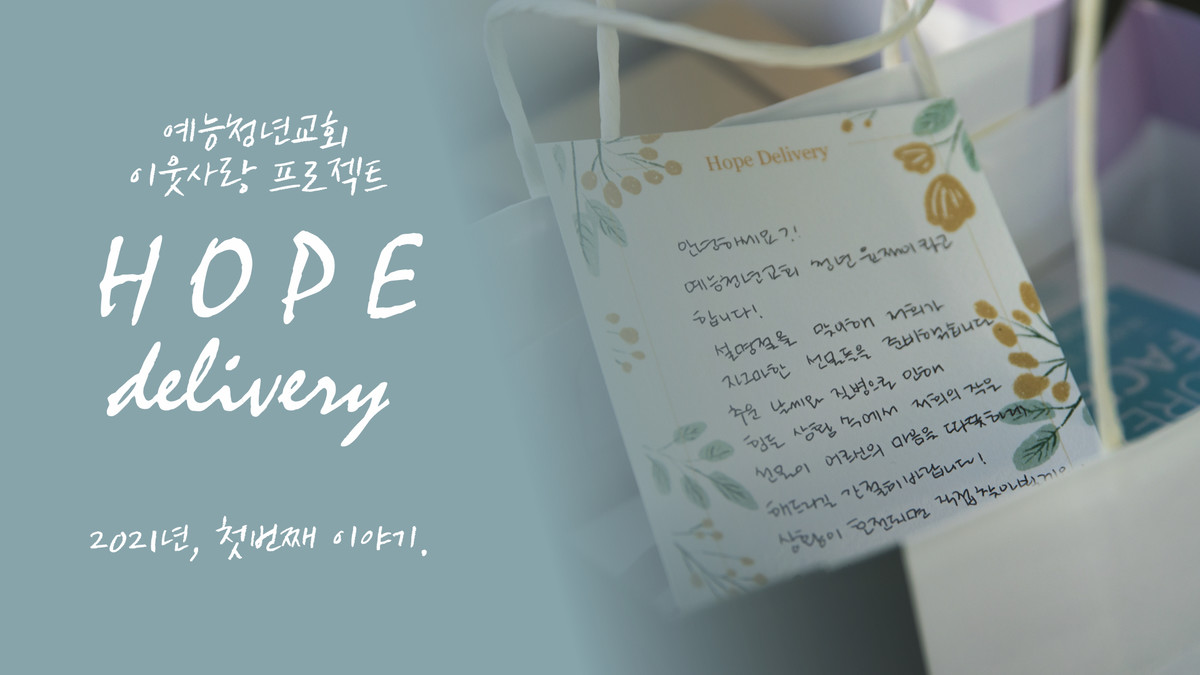 예능청년교회
이웃사랑 프로젝트
HOPE
delivery
2021년, 첫번째 이야기.
Hope Delivery
안녕하세요?!
예능청년교회 청년 윤재이라고
합니다!
설명절을 맞이해 저희가
자그마한 선물을 준비하였습니다
추운 날씨와 질병으로 인해
힘든 상황 속에서 저희의 작은
선물이 어르신의 마음을 따뜻하게
해드리길 간절히 바랍니다!
상황이 호전되면 직접 찾아뵙